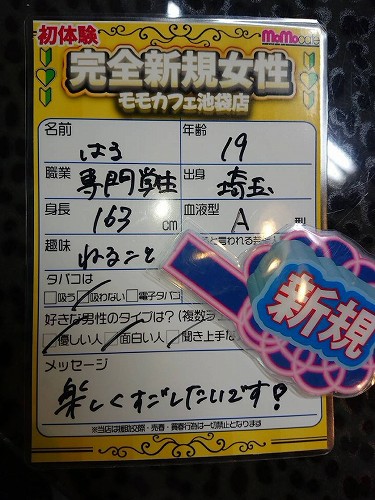 初体験
MoMocafe
完全新規女性
モモカフェ池袋店
名前 はる
年齢 19
職業 専門学生
出身 埼玉
身長 163 cm
血液型 A 型
趣味 ねること
と言われる芸
タバコは
吸う 吸わない 電子タバコ
好きな男性のタイプは?(複数
優しい人 面白い人 聞き上手な
新規
メッセージ
楽しくすごしたいです!
※当店は援助交際・売春・買春行為は一切禁止となります